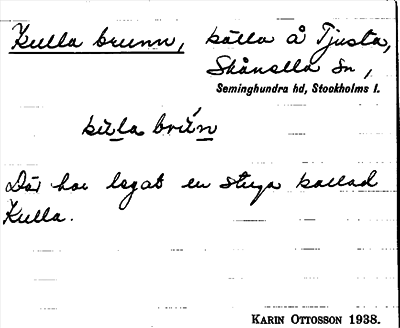 Kulla brunn, källa å Tjusta,
Skånella sn,
Seminghundra hd, Stockholms l.
kula brún
Där har legat en stuga kallad
Kulla.
KARIN OTTOSSON 1938.